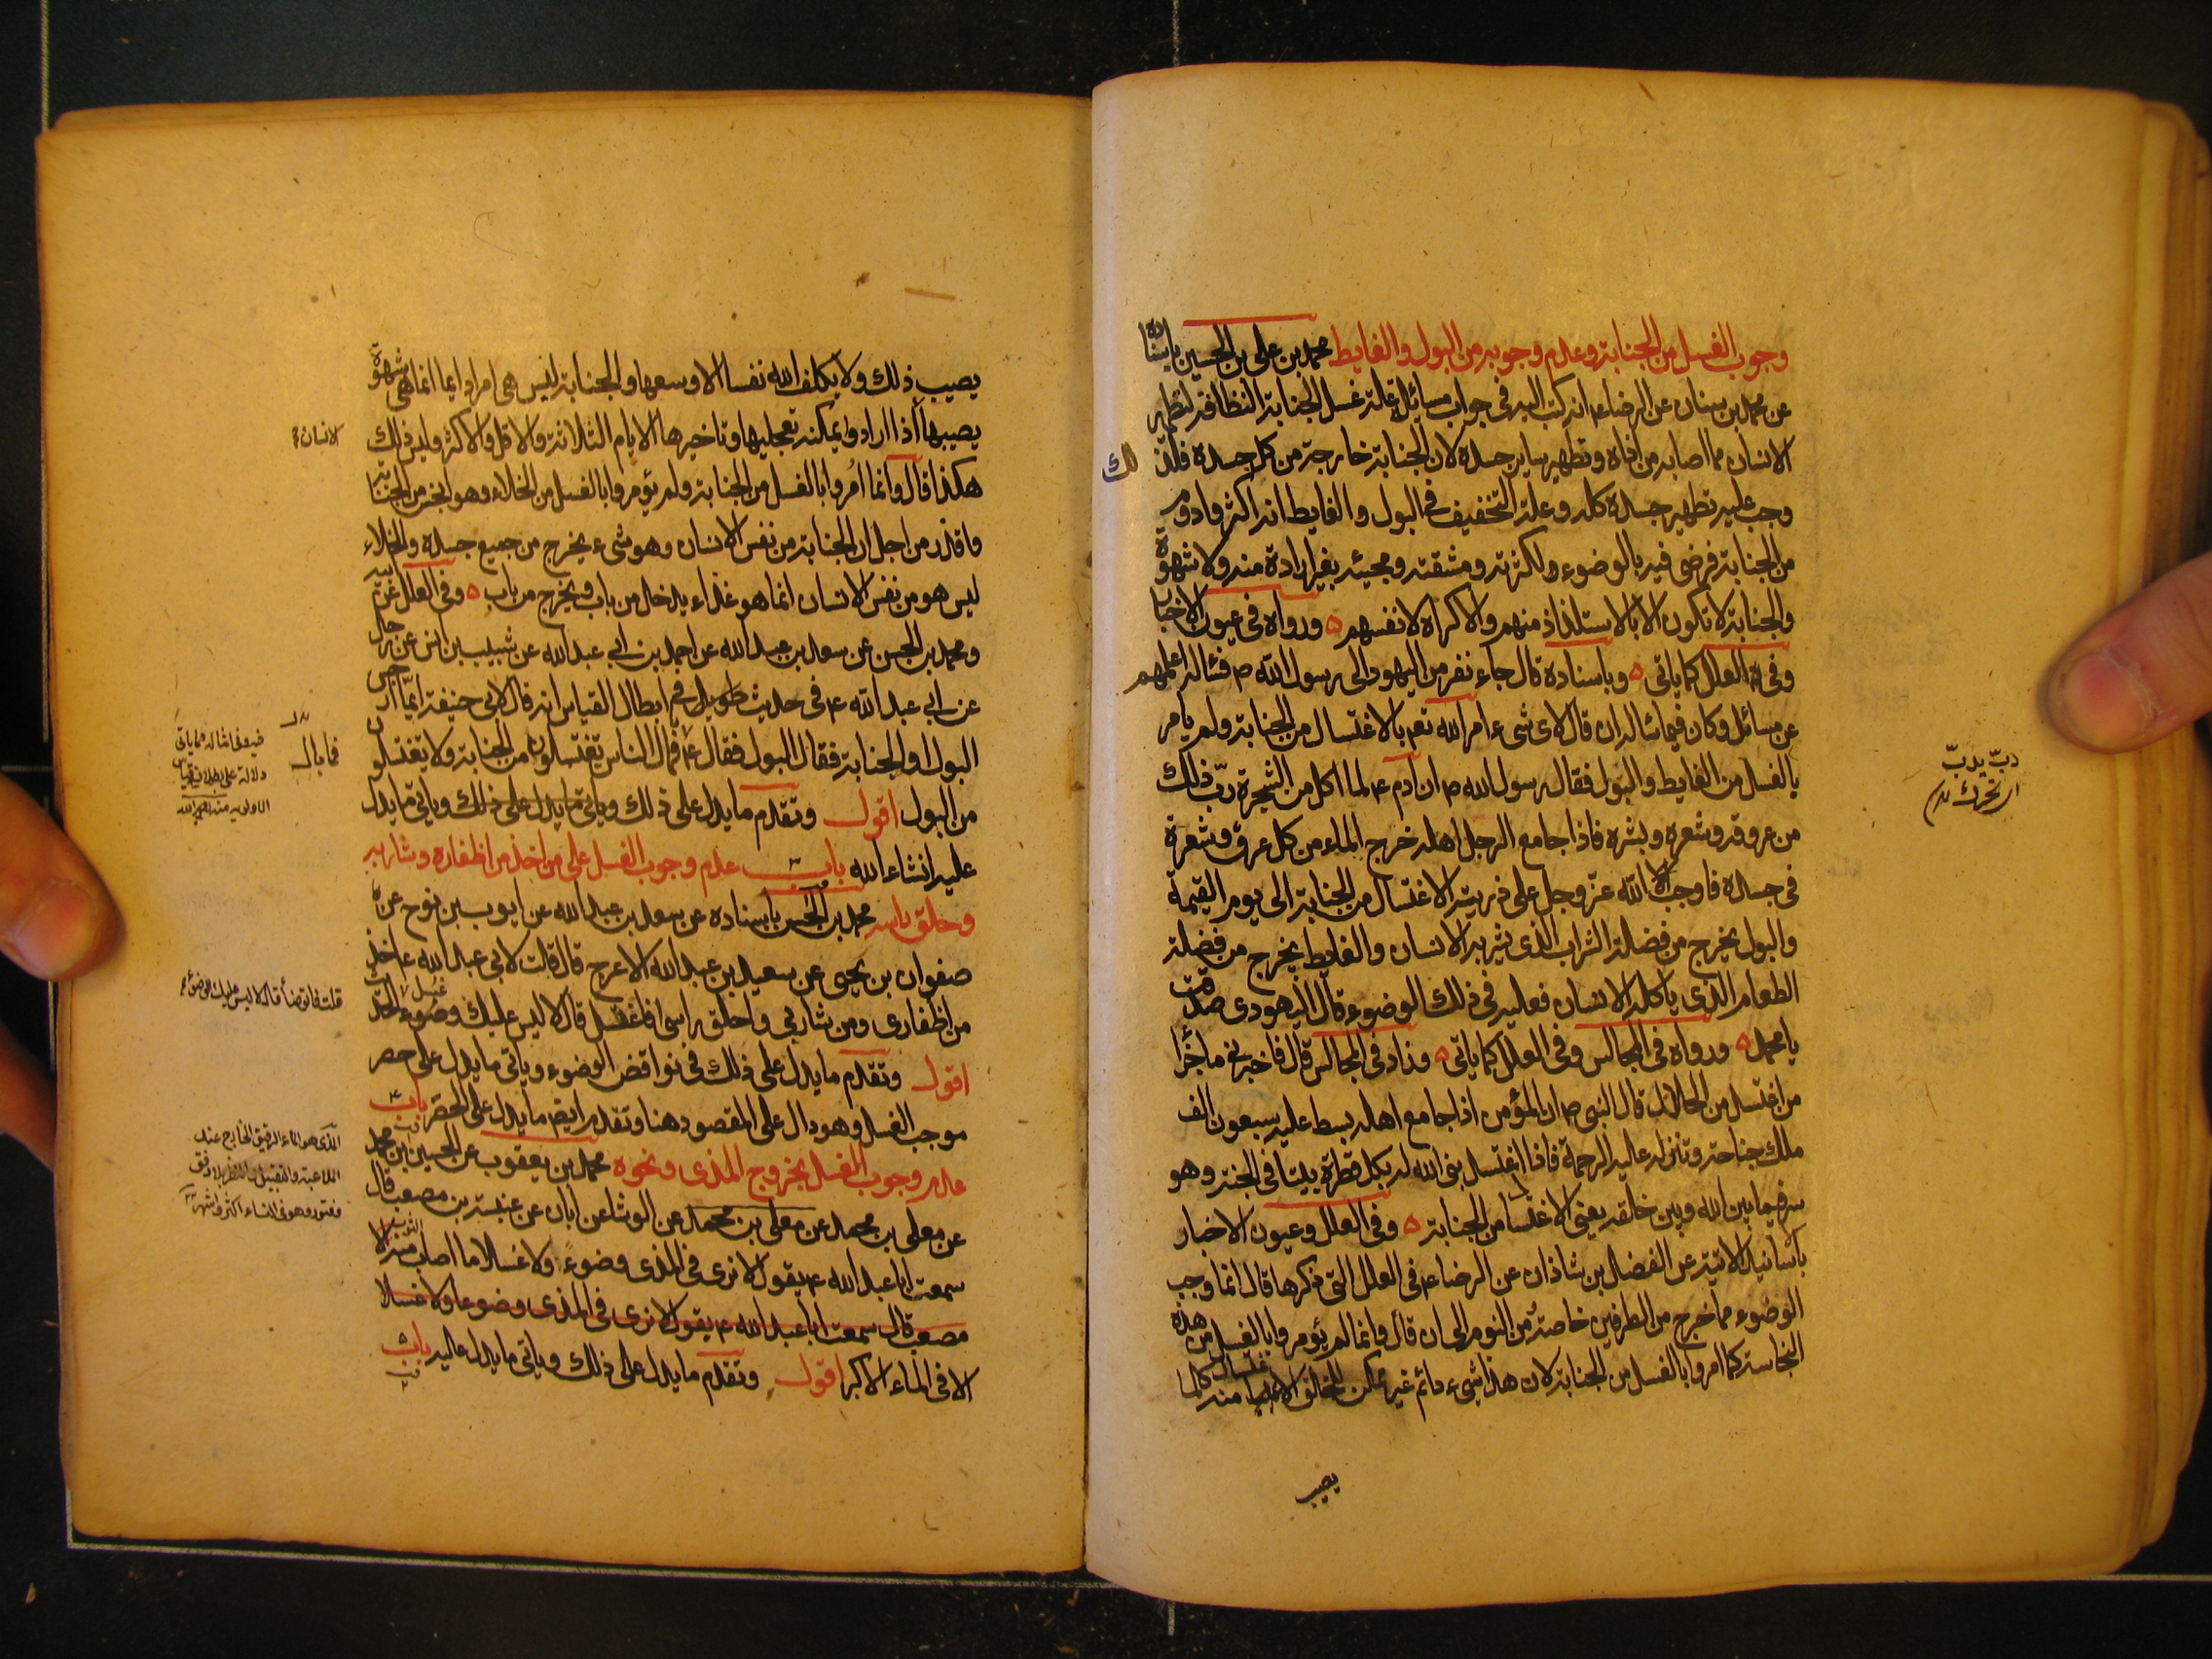 وجوب الغسل من الجنابة وعدم وجوبه من البول والغايط محمد بن علي بن الحسين باسناده
عن محمد بن سنان عن الرضا ع انه كتب اليه في جواب مسائله علة غسل الجنابة النظافة لتطهير
الانسان مما اصابه من اذاه وتطهير ساير جسده لان الجنابة خارجة من كل جسده فلذلك
وجب عليه تطهير جسده كله وعلة التخفيف في البول والغايط انه اكثر وادوم
من الجنابة فرضى فيه بالوضوء ولكثرته ومشقته ومجيئه بغير ارادة منه ولا شهوة
والجنابة لا تكون الا بالاستلذاذ منهم والاكراه لانفسهم ورواه في عيون الاخبار
وفي العلل كما ياتي وباسناده قال جاء نفر من اليهود الى رسول الله ص فسئاله اعلمهم
عن مسائل وكان فيما سئاله ان قال لاى شىء امر الله تعم بالاغتسال من الجنابة ولم يامر
بالغسل من الغايط والبول فقال رسول الله ص ان ادم ع لما اكل من الشجرة دبّ ذلك
من عروقه وشعره وبشره فاذا جامع الرجل اهله خرج الماء من كل عرق وشعرة
في جسده فاوجب الله عز وجل على ذريته الاغتسال من الجنابة الى يوم القيمة
والبول يخرج من فضلة الشراب الذى يشربه الانسان والغايط يخرج من فضلة
الطعام الذى ياكله الانسان فعليه في ذلك الوضوء قال اليهودى صدقت
يا محمد ورواه في المجالس وفي العلل كما ياتي وزاد في المجالس قال فاخبرني ما جزا
من اغتسل من الحلال قال النبي ص ان المؤمن اذا جامع اهله بسط عليه سبعون الف
ملك جناحه وتنزل عليه الرحمة فاذا اغتسل بنى الله له بكل قطرة بيتا في الجنة وهو
سر فيما بين الله وبين خلقه يعني الاغتسال من الجنابة وفي العلل وعيون الاخبار
باسانيد الاتية عن الفضل بن شاذان عن الرضا ع في العلل التي ذكرها قال انما وجب
الوضوء مما خرج من الطرفين خاصة ومن النوم الى ان قال وانما لم يؤمروا بالغسل من هذه
النجاسة كما امروا بالغسل من الجنابة لان هذا شىء دائم غير ممكن للخلق الاغتسال منه كلما
يصيب
دبّ يدبّ
اى تحرك
يصيب ذلك ولا يكلف الله نفسا الا وسعها والجنابة ليس هي امرا دايما انما هي شهوة
يصيبها اذا اراد ويمكنه تعجيلها وتاخيرها الايام الثلاثة والاقل والاكثر وليس ذلك
هكذا قال وانما امروا بالغسل من الجنابة ولم يؤمروا بالغسل من الخلاء وهو انجس من الجنابة
واقذر من اجل ان الجنابة من نفس الانسان وهو شىء يخرج من جميع جسده والخلاء
ليس هو من نفس الانسان انما هو غذاء يدخل من باب ويخرج من باب وفي العلل عن ابيه
ومحمد بن الحسن عن سعد بن عبد الله عن احمد بن ابي عبد الله عن شبيب بن انس عن رجل
عن ابي عبد الله ع في حديث طويل في ابطال القياس انه قال لابي حنيفة ايما ارجس
البول او الجنابة فقال البول فقال ع فما بال الناس يغتسلون من الجنابة ولا يغتسلون
من البول اقول وتقدم ما يدل على ذلك وياتي ما يدل على ذلك وياتي ما يدل
عليه انشاء الله باب عدم وجوب الغسل على من اخذ من اظفاره وشاربه
وحلق راسه محمد بن الحسن باسناده عن سعد بن عبد الله عن ايوب بن نوح عن
صفوان بن يحيى عن سعيد بن عبد الله الاعرج قال قلت لابي عبد الله ع اخذ
من اظفارى ومن شاربي واحلق راسي افاغتسل قال لا ليس عليك غسل
اقول وتقدم ما يدل على ذلك في نواقض الوضوء وياتي ما يدل على حصر
موجب الغسل وهو دال على المقصود هنا وتقدم ايضم ما يدل على الحصر باب
عدم وجوب الغسل بخروج المذى ونحوه محمد بن يعقوب عن الحسين بن محمد
عن معلى بن محمد عن معلى بن محمد عن الوشا عن ابان عن عنبسة بن مصعب قال
سمعت ابا عبد الله ع يقول لا نرى في المذى وضوء ولا غسلا ما اصاب الثوب منه الا
مصعب قال سمعت ابا عبد الله ع يقول لا نرى في المذى وضوءا ولا غسلا
الا في الماء الاكبر اقول وتقدم ما يدل على ذلك وياتي ما يدل عليه باب
الانسان
فما بال
فيه وفي امثاله مما ياتي
دلالة على بطلان قياس
الاولويه منه رحمه الله
قلت فاتوضأ قال لا ليس عليك الوضوء
الذى هو الماء الرقيق الخارج عند
الملاعبة والتقبيل والنظر بلا دفق
وفتور وهو في النساء اكثر واشهر